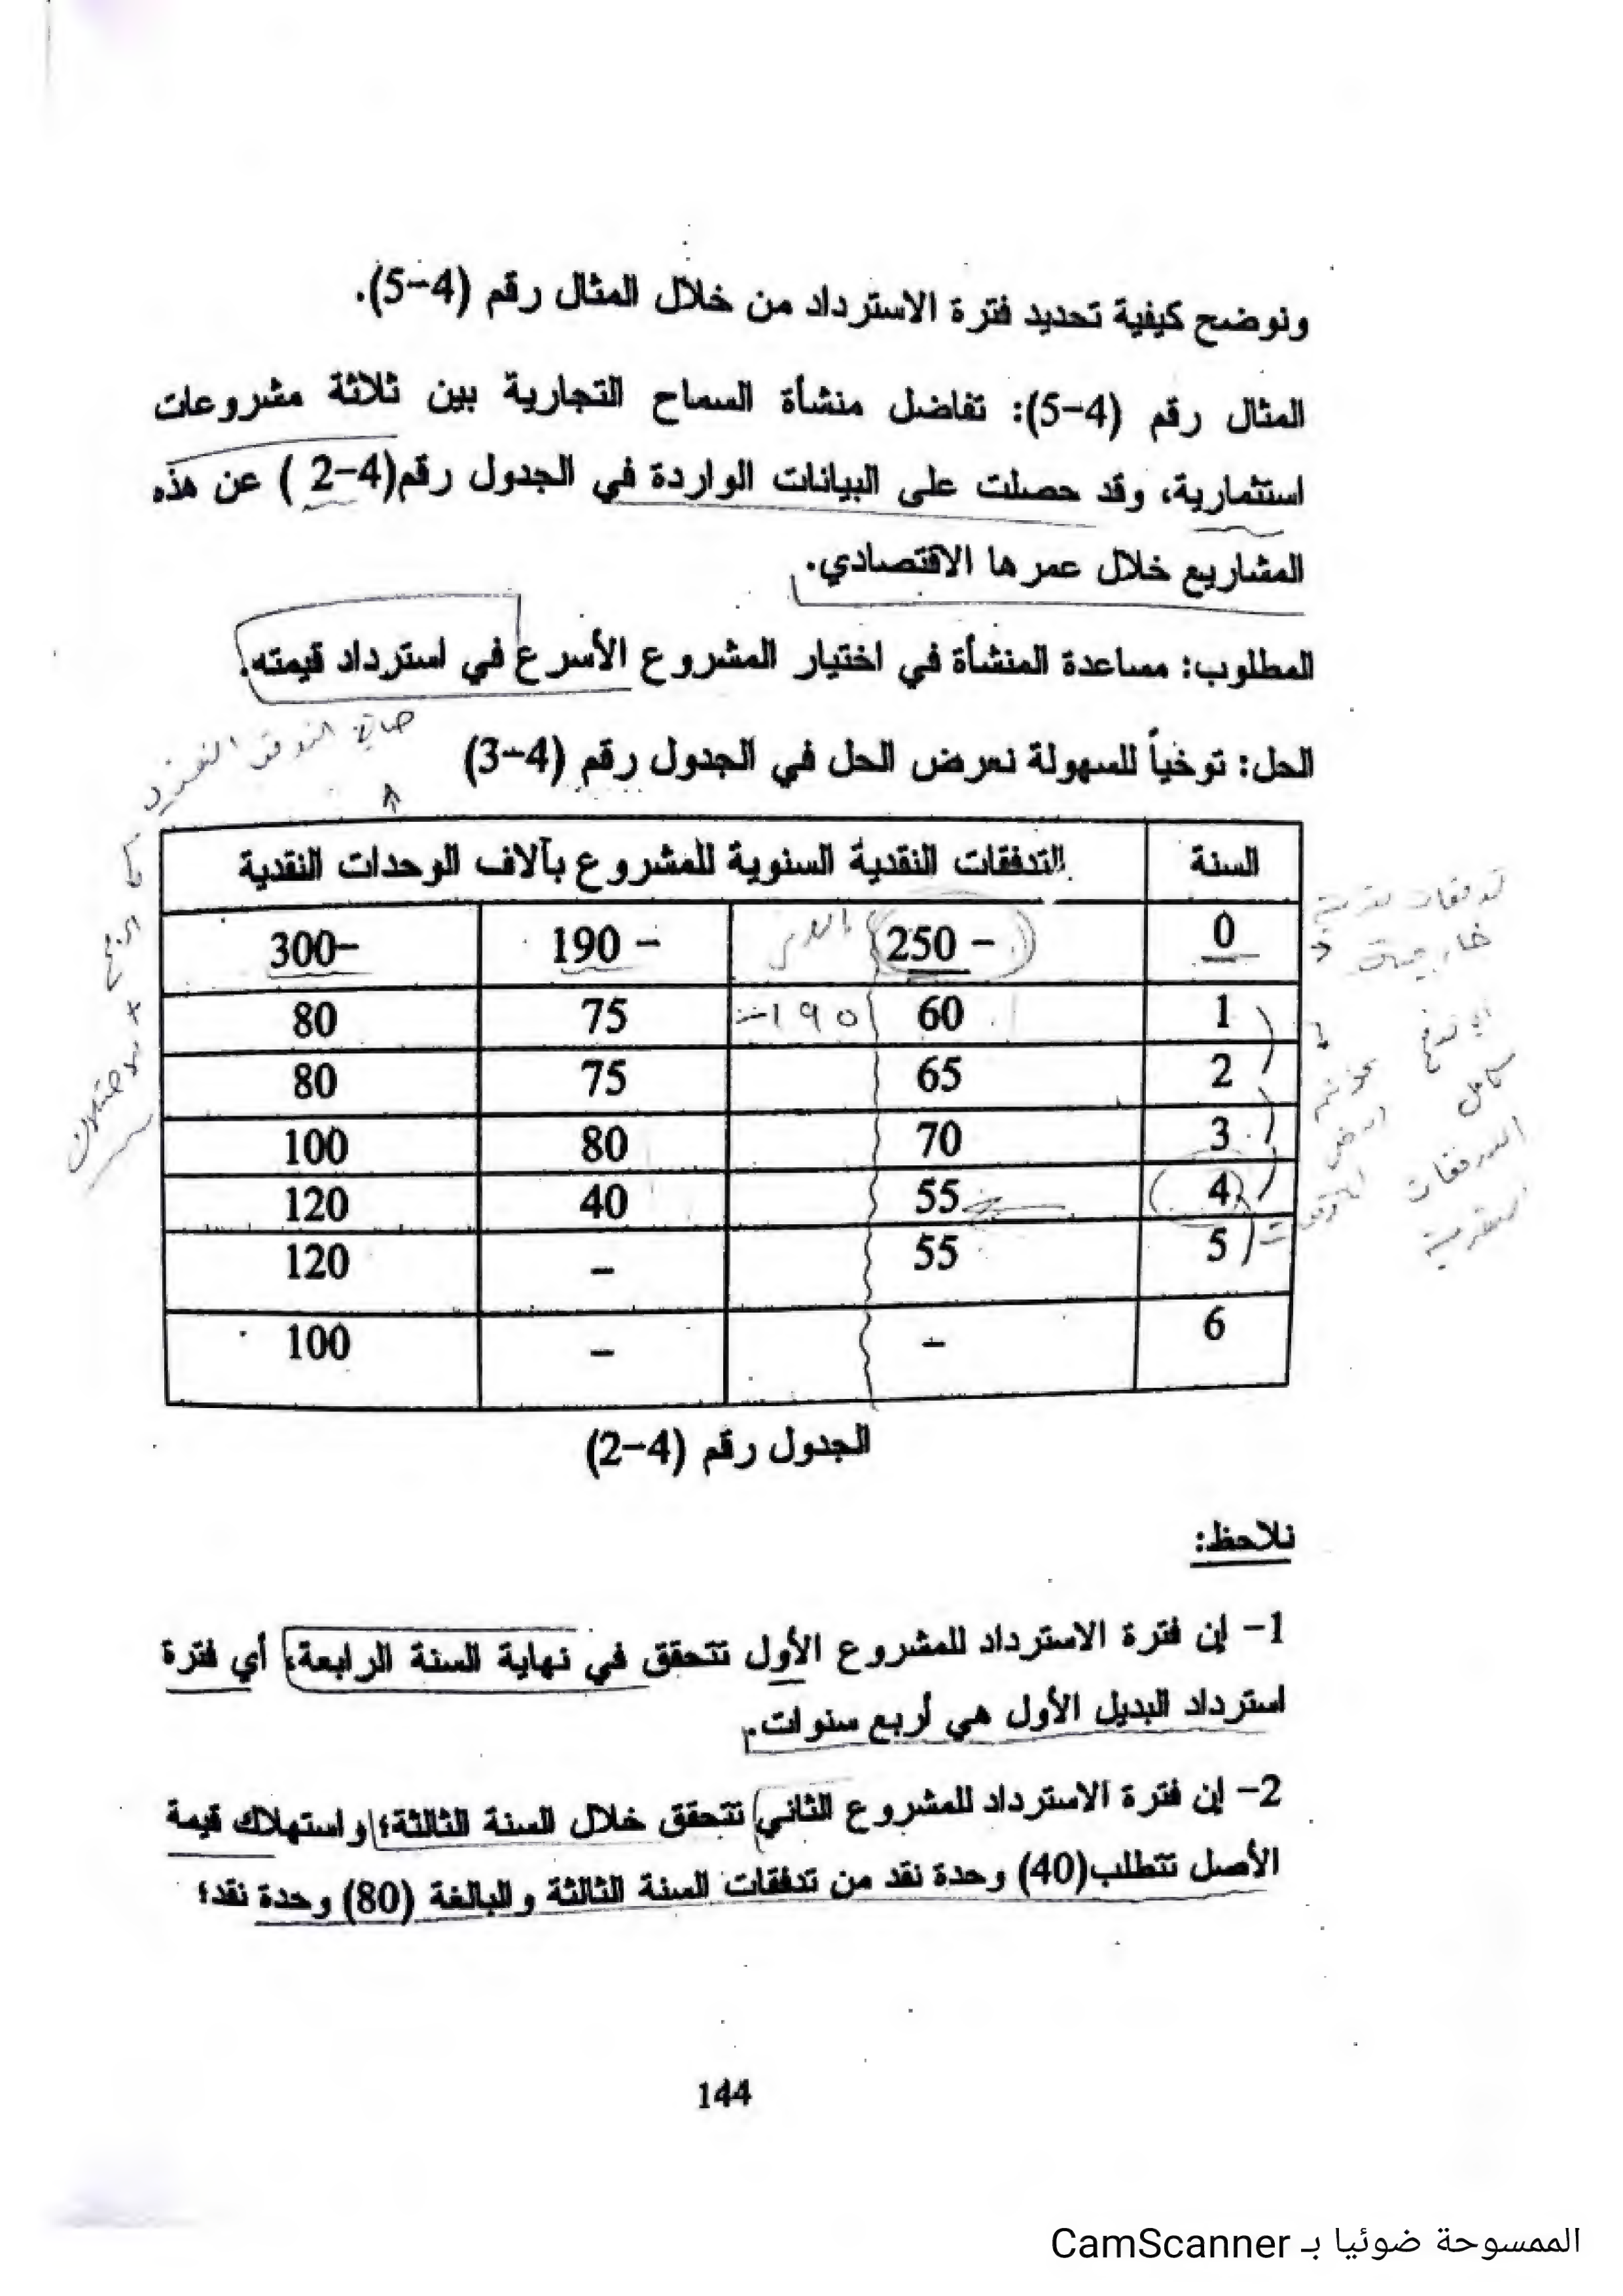 ونوضح كيفية تحديد فترة الاسترداد من خلال المثال رقم (4-5).
المثال رقم (4-5): تفاضل منشأة السماح التجارية بين ثلاثة مشروعات
استثمارية، وقد حصلت على البيانات الواردة في الجدول رقم(4-2 ) عن هذه
المشاريع خلال عمرها الاقتصادي.
المطلوب: مساعدة المنشأة في اختيار المشروع الأسرع في استرداد قيمته.
صافي التدفق النقدي
الحل: توخياً للسهولة نعرض الحل في الجدول رقم (4-3)
السنة التدفقات النقدية السنوية للمشروع بآلاف الوحدات النقدية
0 250 - 190 - 300-
1 60 75 80
2 65 75 80
3 70 80 100
4 55 40 120
5 55 - 120
6 - - 100
تدفقات نقدية
خارجية
كامل
التدفقات
النقدية
الربح
+ الاهتلاك
-190
الجدول رقم (4-2)
نلاحظ:
1- إن فترة الاسترداد للمشروع الأول تتحقق في نهاية السنة الرابعة، أي فترة
استرداد البديل الأول هي أربع سنوات.
2- إن فترة الاسترداد للمشروع الثاني تتحقق خلال السنة الثالثة؛ واستهلاك قيمة
الأصل تتطلب(40) وحدة نقد من تدفقات السنة الثالثة والبالغة (80) وحدة نقد؛
144
الممسوحة ضوئيا بـ CamScanner